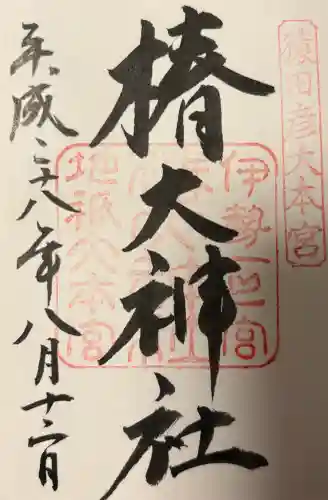 猿田彦大本宮
伊勢一之宮
地祇大本宮
椿大神社
平成二十八年八月十二日